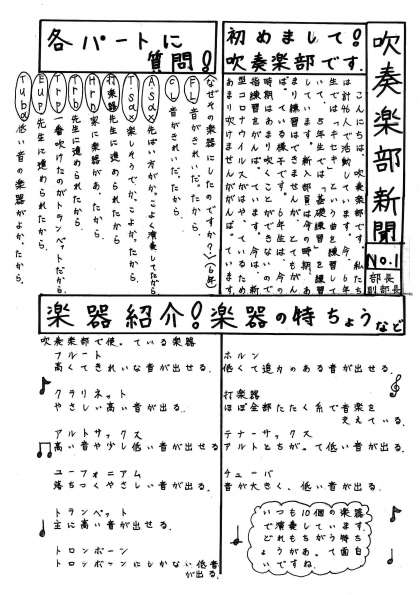 吹奏楽部新聞
No.1
部長
副部長
初めまして!
吹奏楽部です.
こんにちは、吹奏楽部です。私たち
は計46人で活動しています。今、6年
生では「ッキセキ」という曲を練習して
いて、5年生では、基礎練習を練習
しています。新入部員は今の時期あ
まり練習はできませんが、とてもがん
ばっている様子です。6年生は、今の
時期はあまり吹くことができないので
指練習をがんばっています。今は、新
型コロナウイルスがはやっているため
あまり吹けませんががんばっています。
各パートに
質問!
なぜその楽器にしたのですか?(6年)
FL 音がきれいだったから.
CL 音がきれいだったから.
A.sax 先ぱい方がかっこよく演奏してたから.
T.sax 楽しそうでかっこよかったから.
打楽器 先生に進められたから.
Hrn 家に楽器があったから.
Trb 先生に進められたから.
Trp 一番吹けたのがトランペットだから.
Eup 先生に進められたから.
Tuba 低い音の楽器がよかったから.
楽器紹介!楽器の特ちょうなど
吹奏楽部で使っている楽器
フルート
高くてきれいな音が出せる.
クラリネット
やさしい高い音が出る.
アルトサックス
高い音や少し低い音が出せる
ユーフォニアム
落ちつくやさしい音が出る.
トランペット
主に高い音が出せる.
トロンボーン
トロンボーンにしかない低音
が出る.
ホルン
低くて迫力のある音が出せる.
打楽器
ほぼ全部たたく糸で音楽を
支えている.
テナーサックス
アルトとちがって低い音が出る.
チューバ
音が大きく、低い音が出る.
いつも10個の楽器
で演奏しています
どれもちがう特ち
ょうがあって面白
いですね.